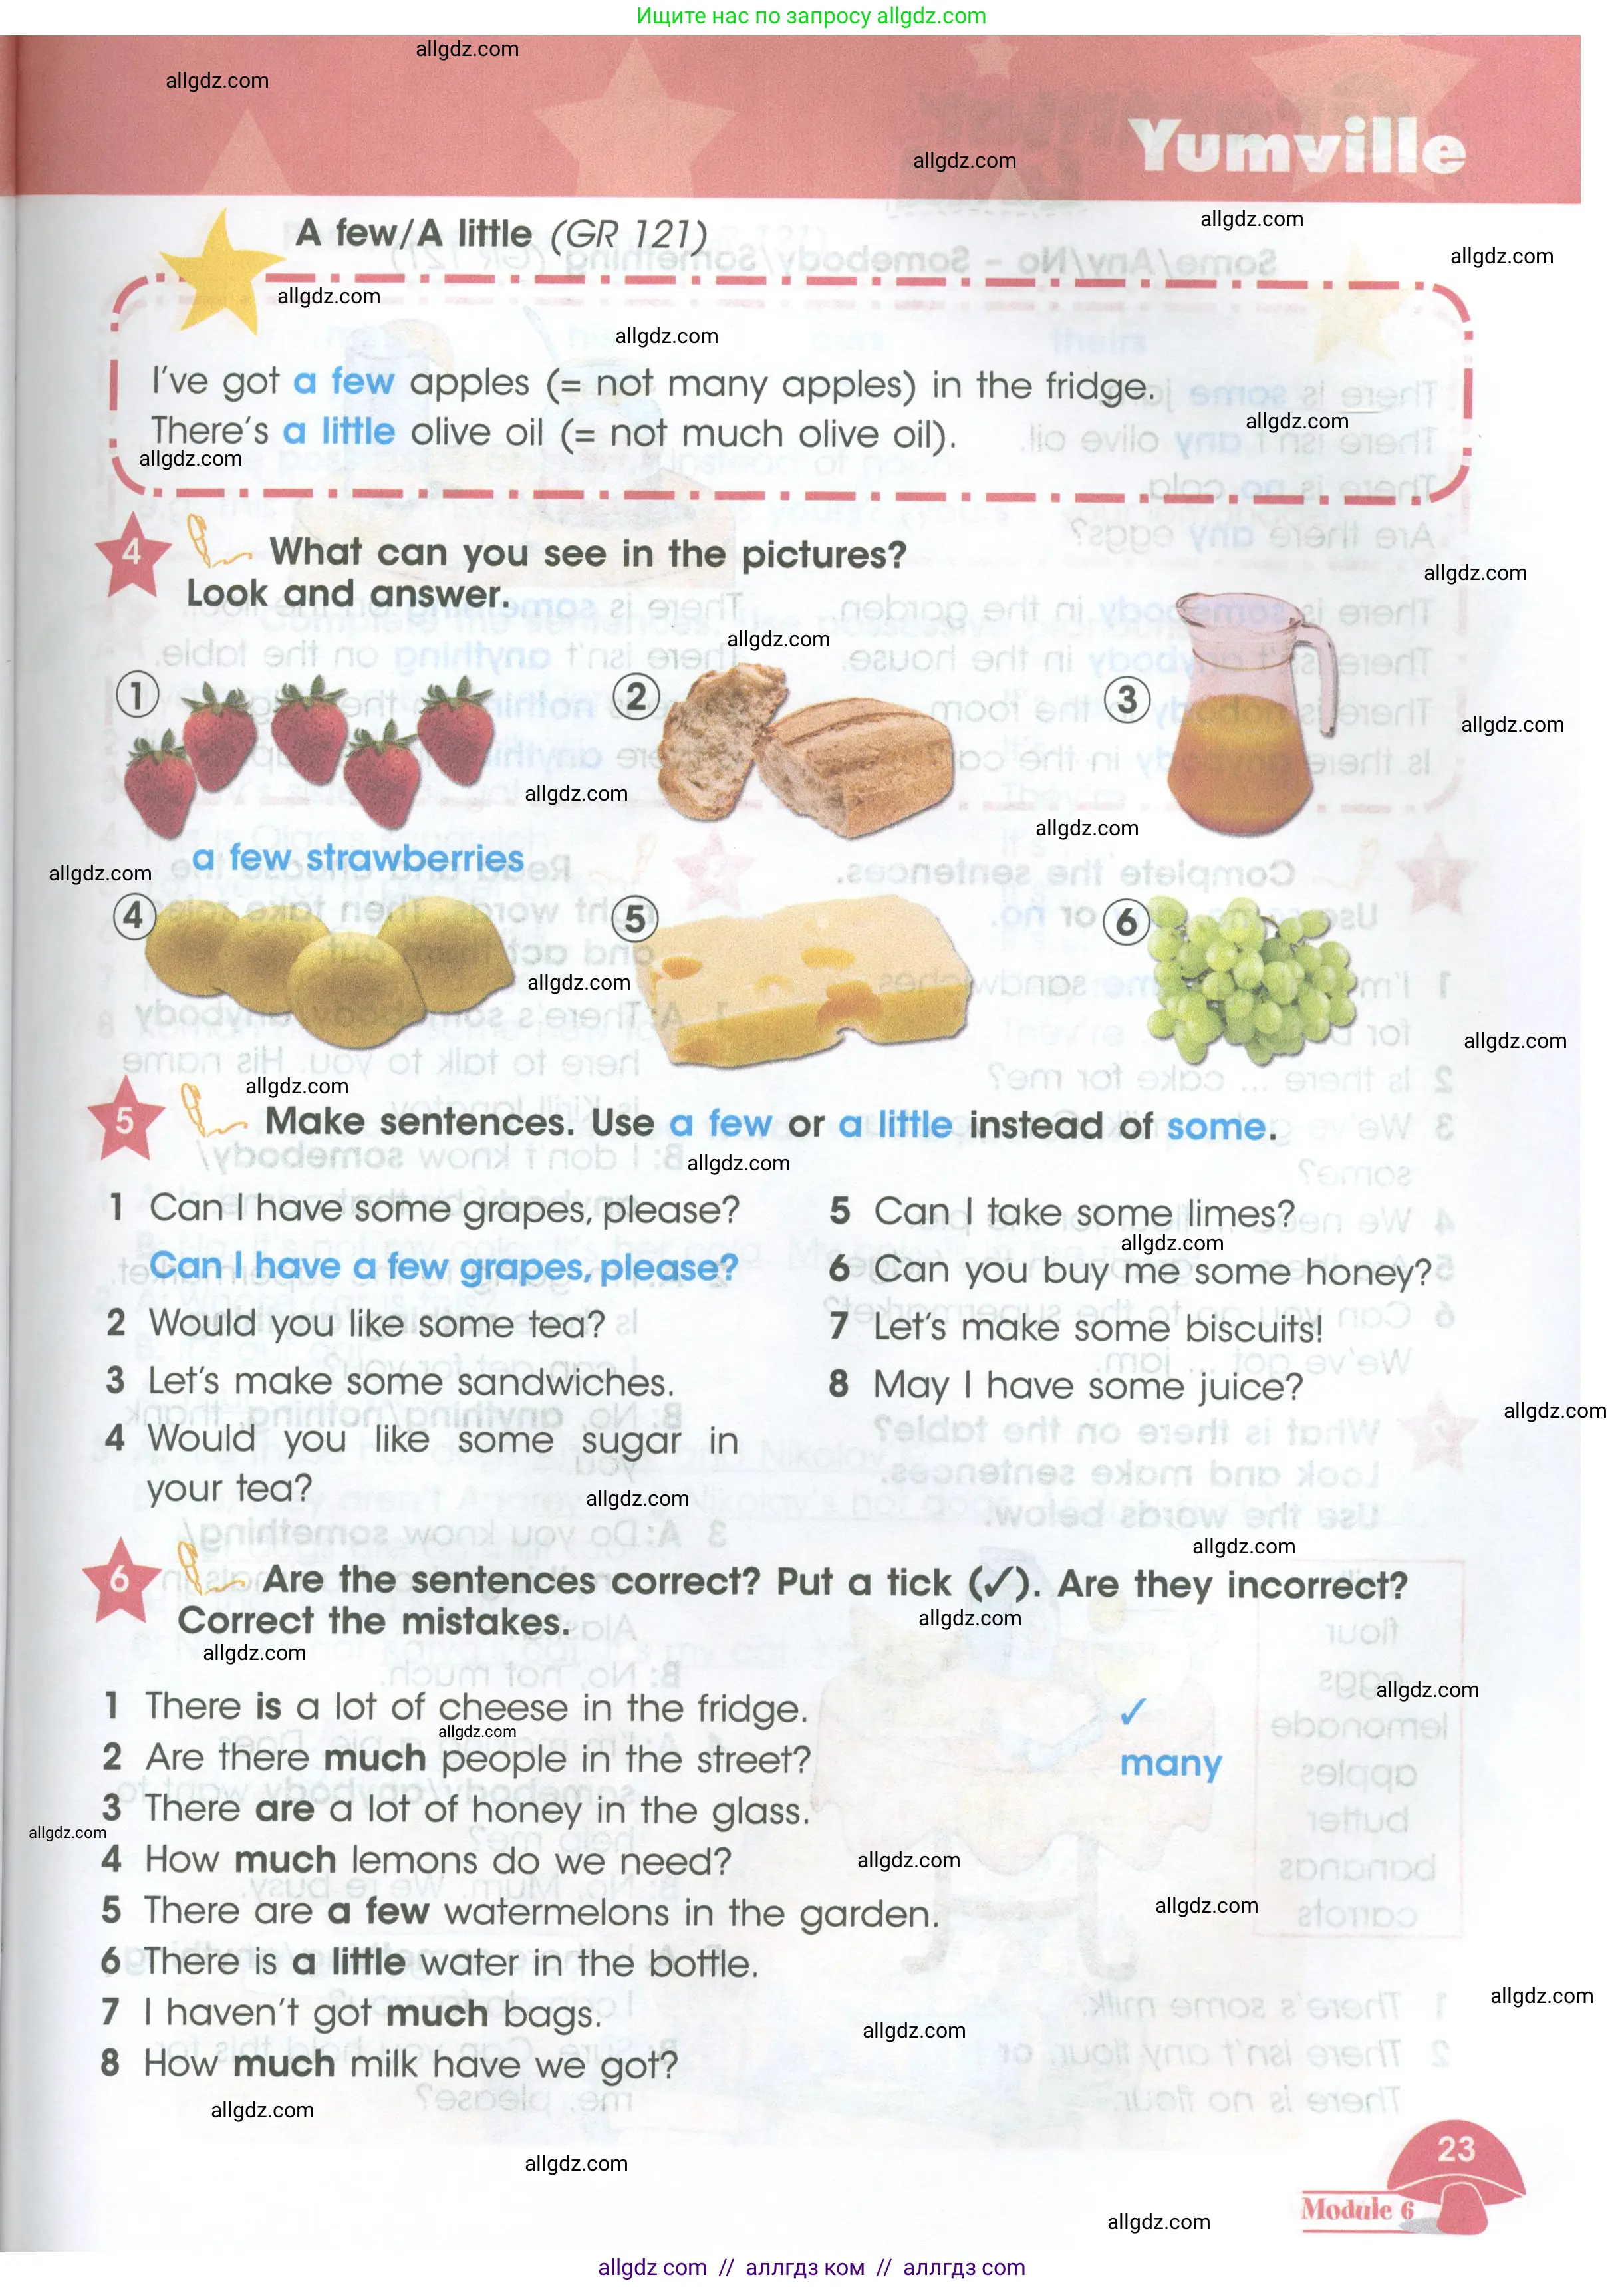 Ищите нас по запросу allgdz.com
allgdz.com
allgdz.com
allgdz.com
Yumville
allgdz.com
A few/A little (GR 121)
allgdz.com
allgdz.com
allgdz.com
I've got a few apples (= not many apples) in the fridge.
allgdz.com
There's a little olive oil (= not much olive oil).
allgdz.com
4 What can you see in the pictures?
Look and answer.
allgdz.com
allgdz.com
1
2
3
allgdz.com
allgdz.com
allgdz.com
a few strawberries
allgdz.com
4
5
6
allgdz.com
allgdz.com
allgdz.com
5 Make sentences. Use a few or a little instead of some.
allgdz.com
1 Can I have some grapes, please?
Can I have a few grapes, please?
2 Would you like some tea?
3 Let's make some sandwiches.
4 Would you like some sugar in
your tea?
5 Can I take some limes?
allgdz.com
6 Can you buy me some honey?
7 Let's make some biscuits!
8 May I have some juice?
allgdz.com
allgdz.com
allgdz.com
6 Are the sentences correct? Put a tick (✓). Are they incorrect?
Correct the mistakes.
allgdz.com
allgdz.com
allgdz.com
1 There is a lot of cheese in the fridge. ✓
allgdz.com
2 Are there much people in the street? many
3 There are a lot of honey in the glass.
allgdz.com
4 How much lemons do we need?
allgdz.com
allgdz.com
5 There are a few watermelons in the garden.
6 There is a little water in the bottle.
allgdz.com
7 I haven't got much bags.
allgdz.com
8 How much milk have we got?
allgdz.com
allgdz.com
23
Module 6
allgdz.com
allgdz com // аллгдз ком // аллгдз com